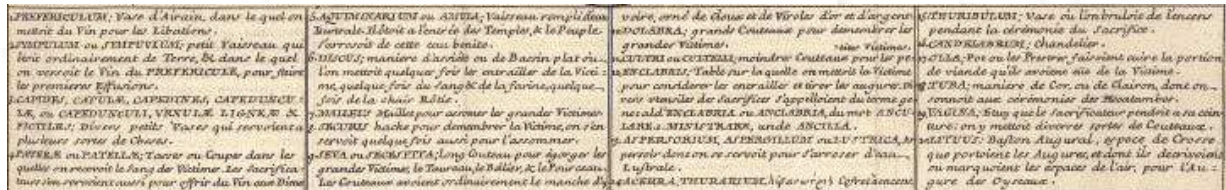 1. PREFERICULUM; Vase d'Airain, dans le quel on
mettoit du Vin pour les Libations.
2. SYMPULUM ou SYMPUVIUM; petit Vaisseau qui
étoit ordinairement de Terre, & dans le quel
on versoit le Vin du PREFERICULE, pour faire
les premieres Effusions.
3. CAPIDES, CAPULÆ, CAPEDINES, CAPEDUNCU-
LÆ, ou CAPEDUNCULI, URNULÆ LIGNEÆ &
FICTILES; Divers petits Vases qui servoient a
plusieurs sortes de Choses.
4. PATERÆ ou PATELLÆ; Tasses ou Coupes dans les
quelles on recevoit le Sang des Victimes. Les Sacrifica-
teurs s'en servoient aussi pour offrir du Vin aux Dieux
5. AQUIMINARIUM ou AMULA; Vaisseau rempli d'eau
lustrale. Il étoit a l'entrée des Temples, & le Peuple
s'arrosoit de cette eau benite.
6. DISCUS; maniere d'assiete ou de Bassin plat où
l'on mettoit quelque fois les entrailles de la Victi-
me, quelque fois du sang & de la farine, quelque
fois de la chair Rôtie.
7. MALLEUS Maillet pour assomer les grandes Victimes
8. SECURIS hache pour demembrer la Victime, on s'en
servoit quelque fois aussi pour l'assommer.
9. SEVA ou SECESPITA; long Couteau pour égorger les
grandes Victimes, le Taureau, le Belier, & le Pourceau.
Les Couteaux avoient ordinairement le manche d'y
voire, orné de Cloux et de Viroles d'or et d'argent
10. DOLABRA; grands Couteaux pour demembrer les
grandes Victimes.
11. CULTRI ou CULTELLI; moindres Couteaux pour les pe-
tites Victimes.
12. ENCLABRIS; Table sur la quelle on mettoit la Victime
pour considerer les entrailles et tirer les augures. Di-
vers utensiles des Sacrifices s'appelloient du terme ge-
neral d'ENCLABRIA ou ANCLABRIA, du mot ANCU-
LARE MINISTRARE, unde ANCILLA.
13. ASPERSORIUM, ASPERGILLUM ou LUSTRICA, as-
persoir dont on se servoit pour s'arroser d'eau
Lustrale.
14. ACERRA, THURARIUM, Coffret a encens
15. THURIBULUM; Vase où l'on bruloit de l'encens
pendant la cérémonie du Sacrifice.
16. CANDELABRUM; Chandelier.
17. OLLA; Pot ou les Prestres faisoient cuire la portion
de viande qu'ils avoient eüe de la Victime.
18. TUBA; maniere de Cor, ou de Clairon, dont on
sonnoit aux cérémonies des Hecatombes.
19. VAGINA, Etuy que le sacrificateur pendoit a sa cein-
ture; on y mettoit diverses sortes de Couteaux.
20. LITUUS; Baston Augural, espece de Crosse
que portoient les Augures, et dont ils decrivoient
ou marquoient les espaces de l'air, pour l'Au-
gure des Oyseaux.